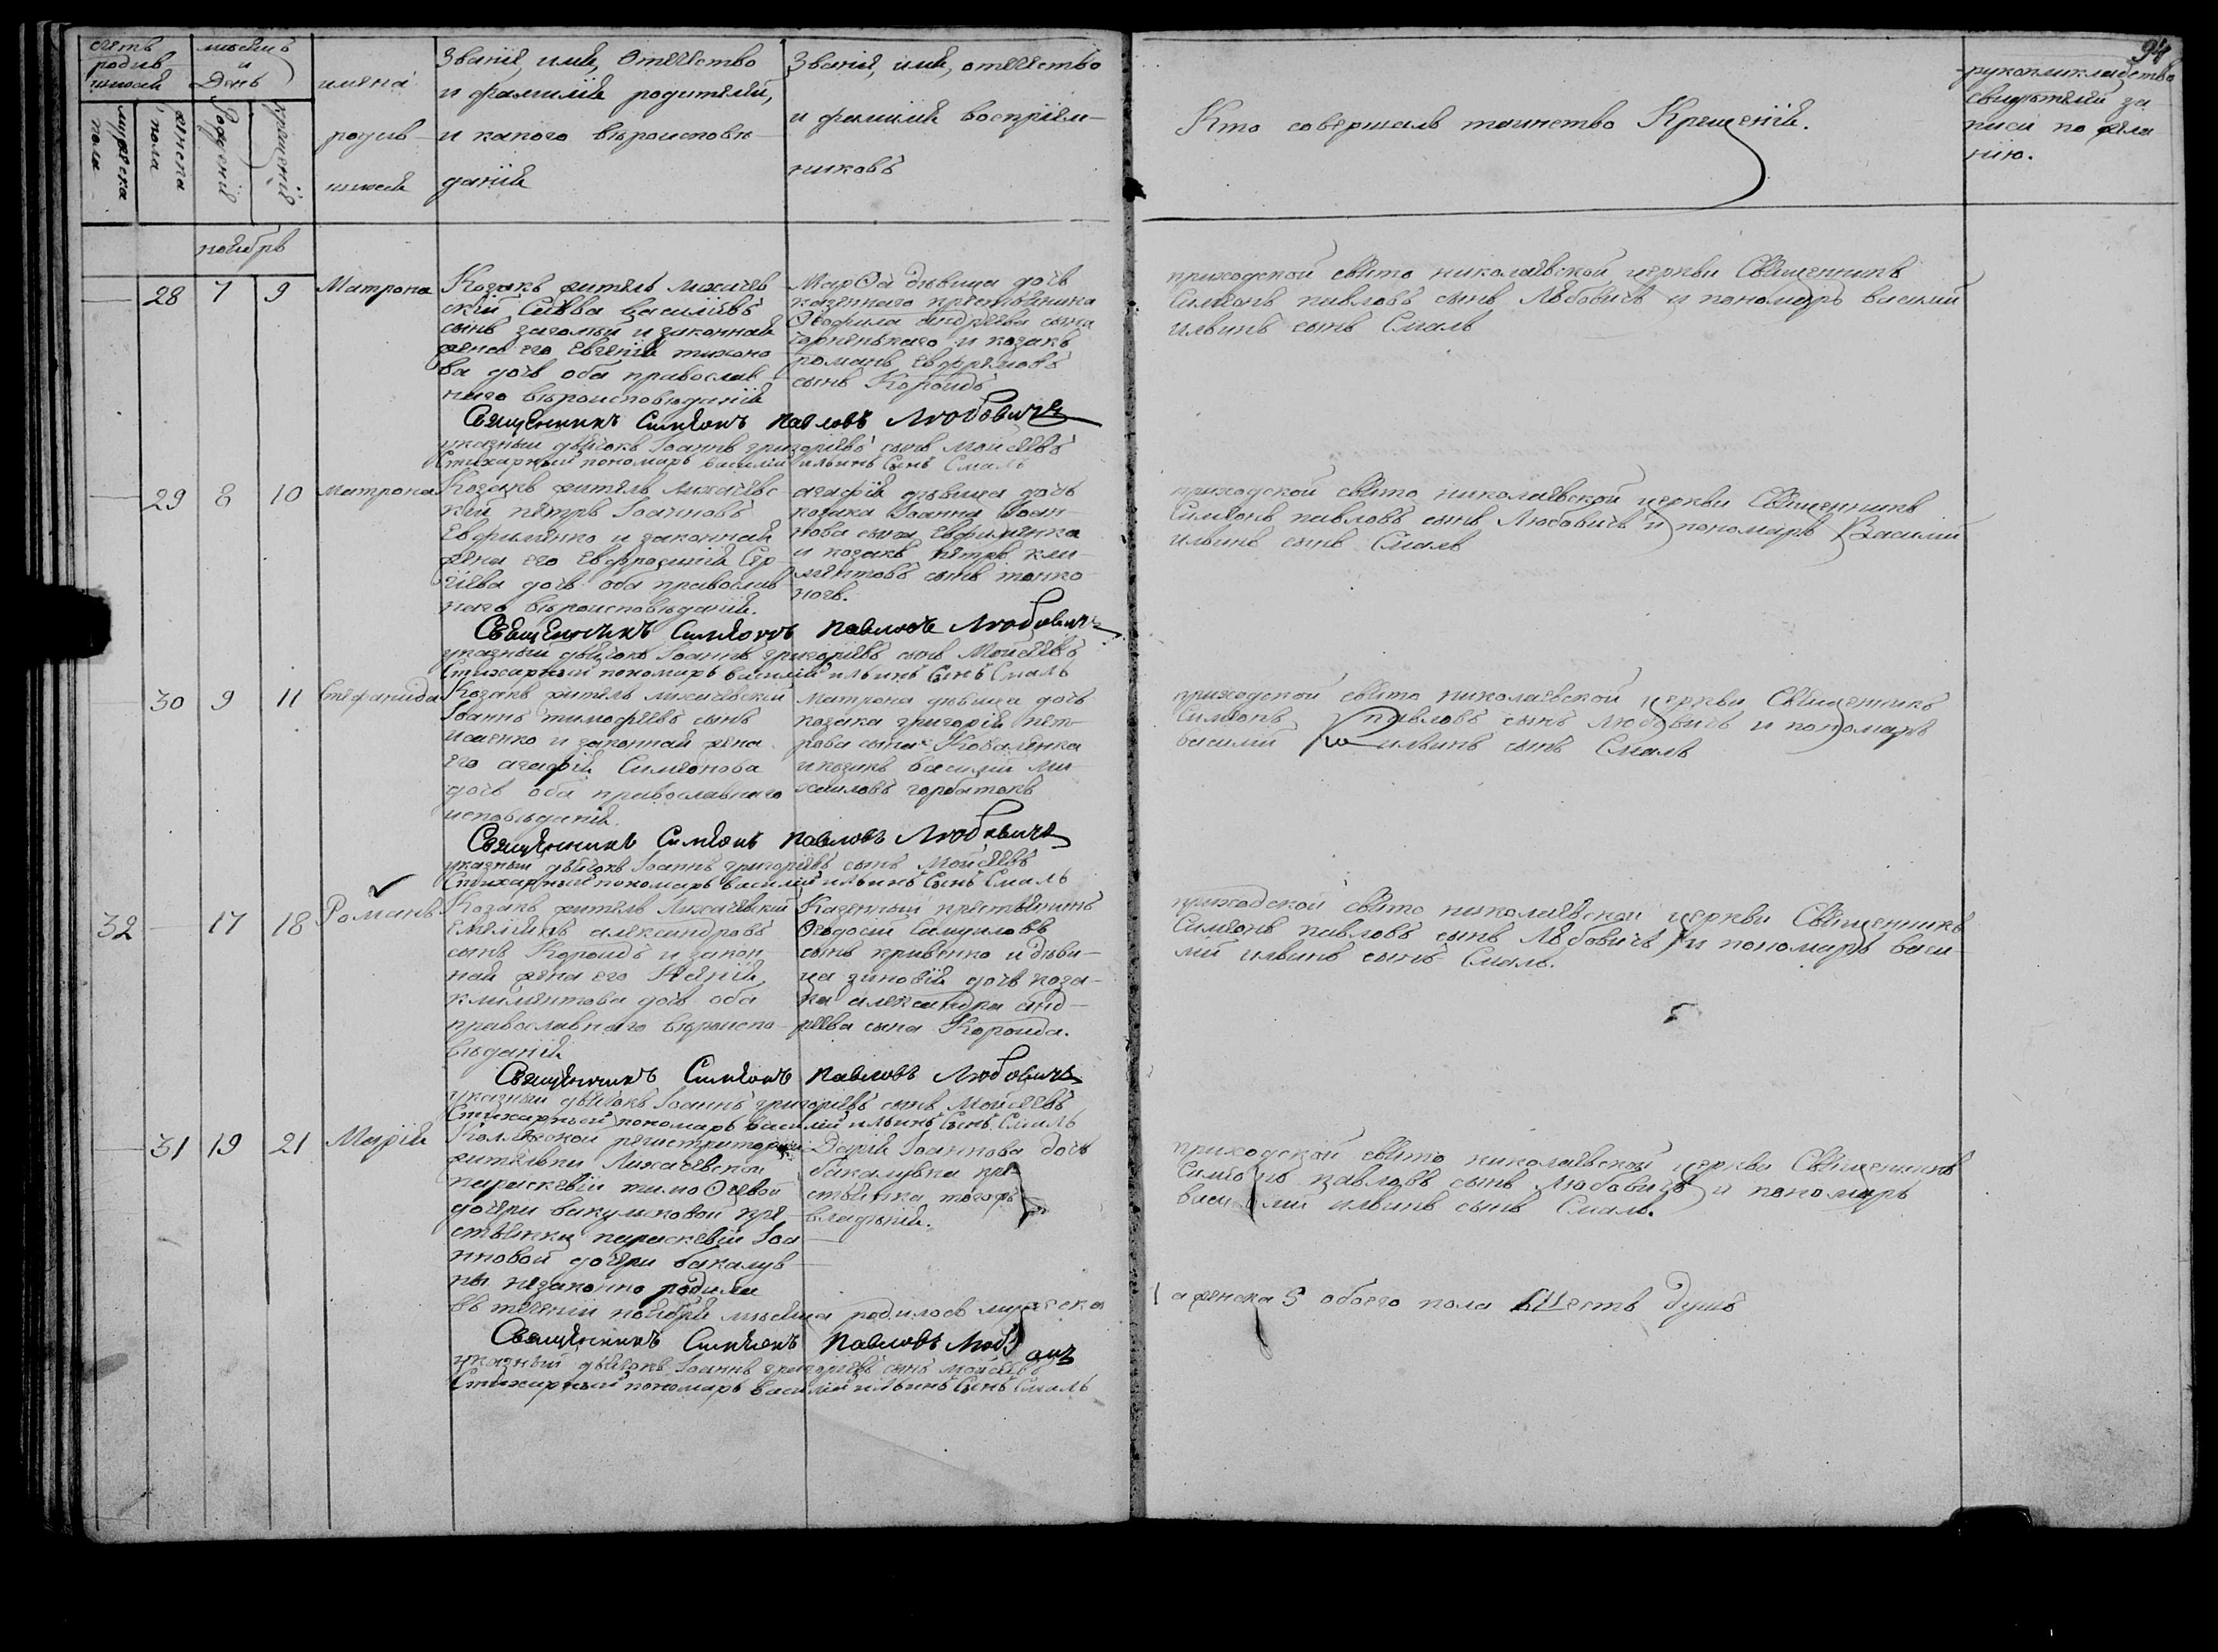 94
счетъ родив шихся
мѣсяцъ и День
мужеска пола
женска пола
Рожденія
крещенія
имена родив шихся
Званіе, имя, Отечество
и фамилія родителей,
и какого вѣроисповѣ
данія
Званіе, имя, отечество
и фамилія воспріем-
никовъ
Кто совершалъ таинство Крещенія.
рукоприкладство
свидѣтелей за
писи по жела
нію.
ноября
28 7 9 Матрона
Козакъ житель лихачев
скій Савва василіевъ
сынъ и законная
жена его Евгенія тихоно
ва дочь оба православ
наго вѣроисповѣданія
Марѳа дѣвица дочь
казеннаго крестьянина
Ѳеофила андреева сына
и козакъ
романъ евфремовъ
сынъ Короидъ
приходской свято николаевской церкви Священникъ
Симеонъ павловъ сынъ Любовичъ и пономарь василій
ильинъ сынъ Смаль
Священникъ Симеонъ Павловъ Любовичъ
указный дьячокъ Іоаннъ григоріевъ сынъ Моисеевъ
Стихарный пономарь василій ильинъ Сынъ Смаль
29 8 10 матрона
Козакъ житель Лихачевс
кій петръ Іоанновъ
Евфименко и законная
жена его Евфросинія Сер
гіева дочь оба православ
наго вѣроисповѣданія.
агафія дѣвица дочь
козака Іоанна Іоан-
нова сына Евфименка
и козакъ петръ кли
ментовъ сынъ тонко
ногъ.
приходской свято николаевской церкви Священникъ
Симеонъ павловъ сынъ Любовичъ и пономарь Василій
ильинъ сынъ Смаль
Священникъ Симеонъ Павловъ Любовичъ
указный дьячокъ Іоаннъ григоріевъ сынъ Моисеевъ
Стихарный пономарь василій ильинъ Сынъ Смаль
30 9 11 Стефанида
Козакъ житель лихачевскій
Іоаннъ тимофеевъ сынъ
исаенко и законная жена
его агафія Симеонова
дочь оба православнаго
исповѣданія.
матрона дѣвица дочь
козака григорія пет-
рова сына Коваленка
и козакъ василій ми
хаиловъ горбатокъ
приходской свято николаевской церкви Священникъ
Симеонъ павловъ сынъ любовичъ и пономарь
василій ильинъ сынъ Смаль
Священникъ Симеонъ Павловъ Любовичъ
указный дьячокъ Іоаннъ григоріевъ сынъ Моисеевъ
Стихарный пономарь василій ильинъ Сынъ Смаль
32 17 18 Романъ
Козакъ житель Лихачевскій
Емеліянъ александровъ
сынъ Короидъ и закон-
ная жена его Ксенія
климентова дочь оба
православнаго вѣроиспо-
вѣданія
Казенный крестьянинъ
Ѳеодосій Самуиловъ
сынъ кривенко и дѣви-
ца зиновія дочь коза-
ка александра анд-
реева сына Короида.
приходской свято николаевской церкви Священникъ
Симеонъ павловъ сынъ Любовичъ и пономарь васи-
лій ильинъ сынъ Смаль.
Священникъ Симеонъ Павловъ Любовичъ
указный дьячокъ Іоаннъ григоріевъ сынъ Моисеевъ
Стихарный пономарь василій ильинъ Сынъ Смаль
31 19 21 Марія
Колежской регистраторши
жительки Лихачевской
параскевіи тимоѳеевой
дочери вакуляковой кре-
стьянки параскевіи Іоа
нновой дочери бакалув
ны незаконно родился
Дарія Іоаннова дочь
бакалувна кре
стьянка тогожъ
владѣнія.
приходской свято николаевской церкви Священникъ
Симеонъ павловъ сынъ Любовичъ и пономарь
василій ильинъ сынъ Смаль.
въ теченіи ноября мѣсяца родилось мужеска 1 а женска 5 обоего пола Шесть душъ
Священникъ Симеонъ Павловъ
указный дьячокъ Іоаннъ григоріевъ сынъ Моисеевъ
Стихарный пономарь василій ильинъ Сынъ Смаль